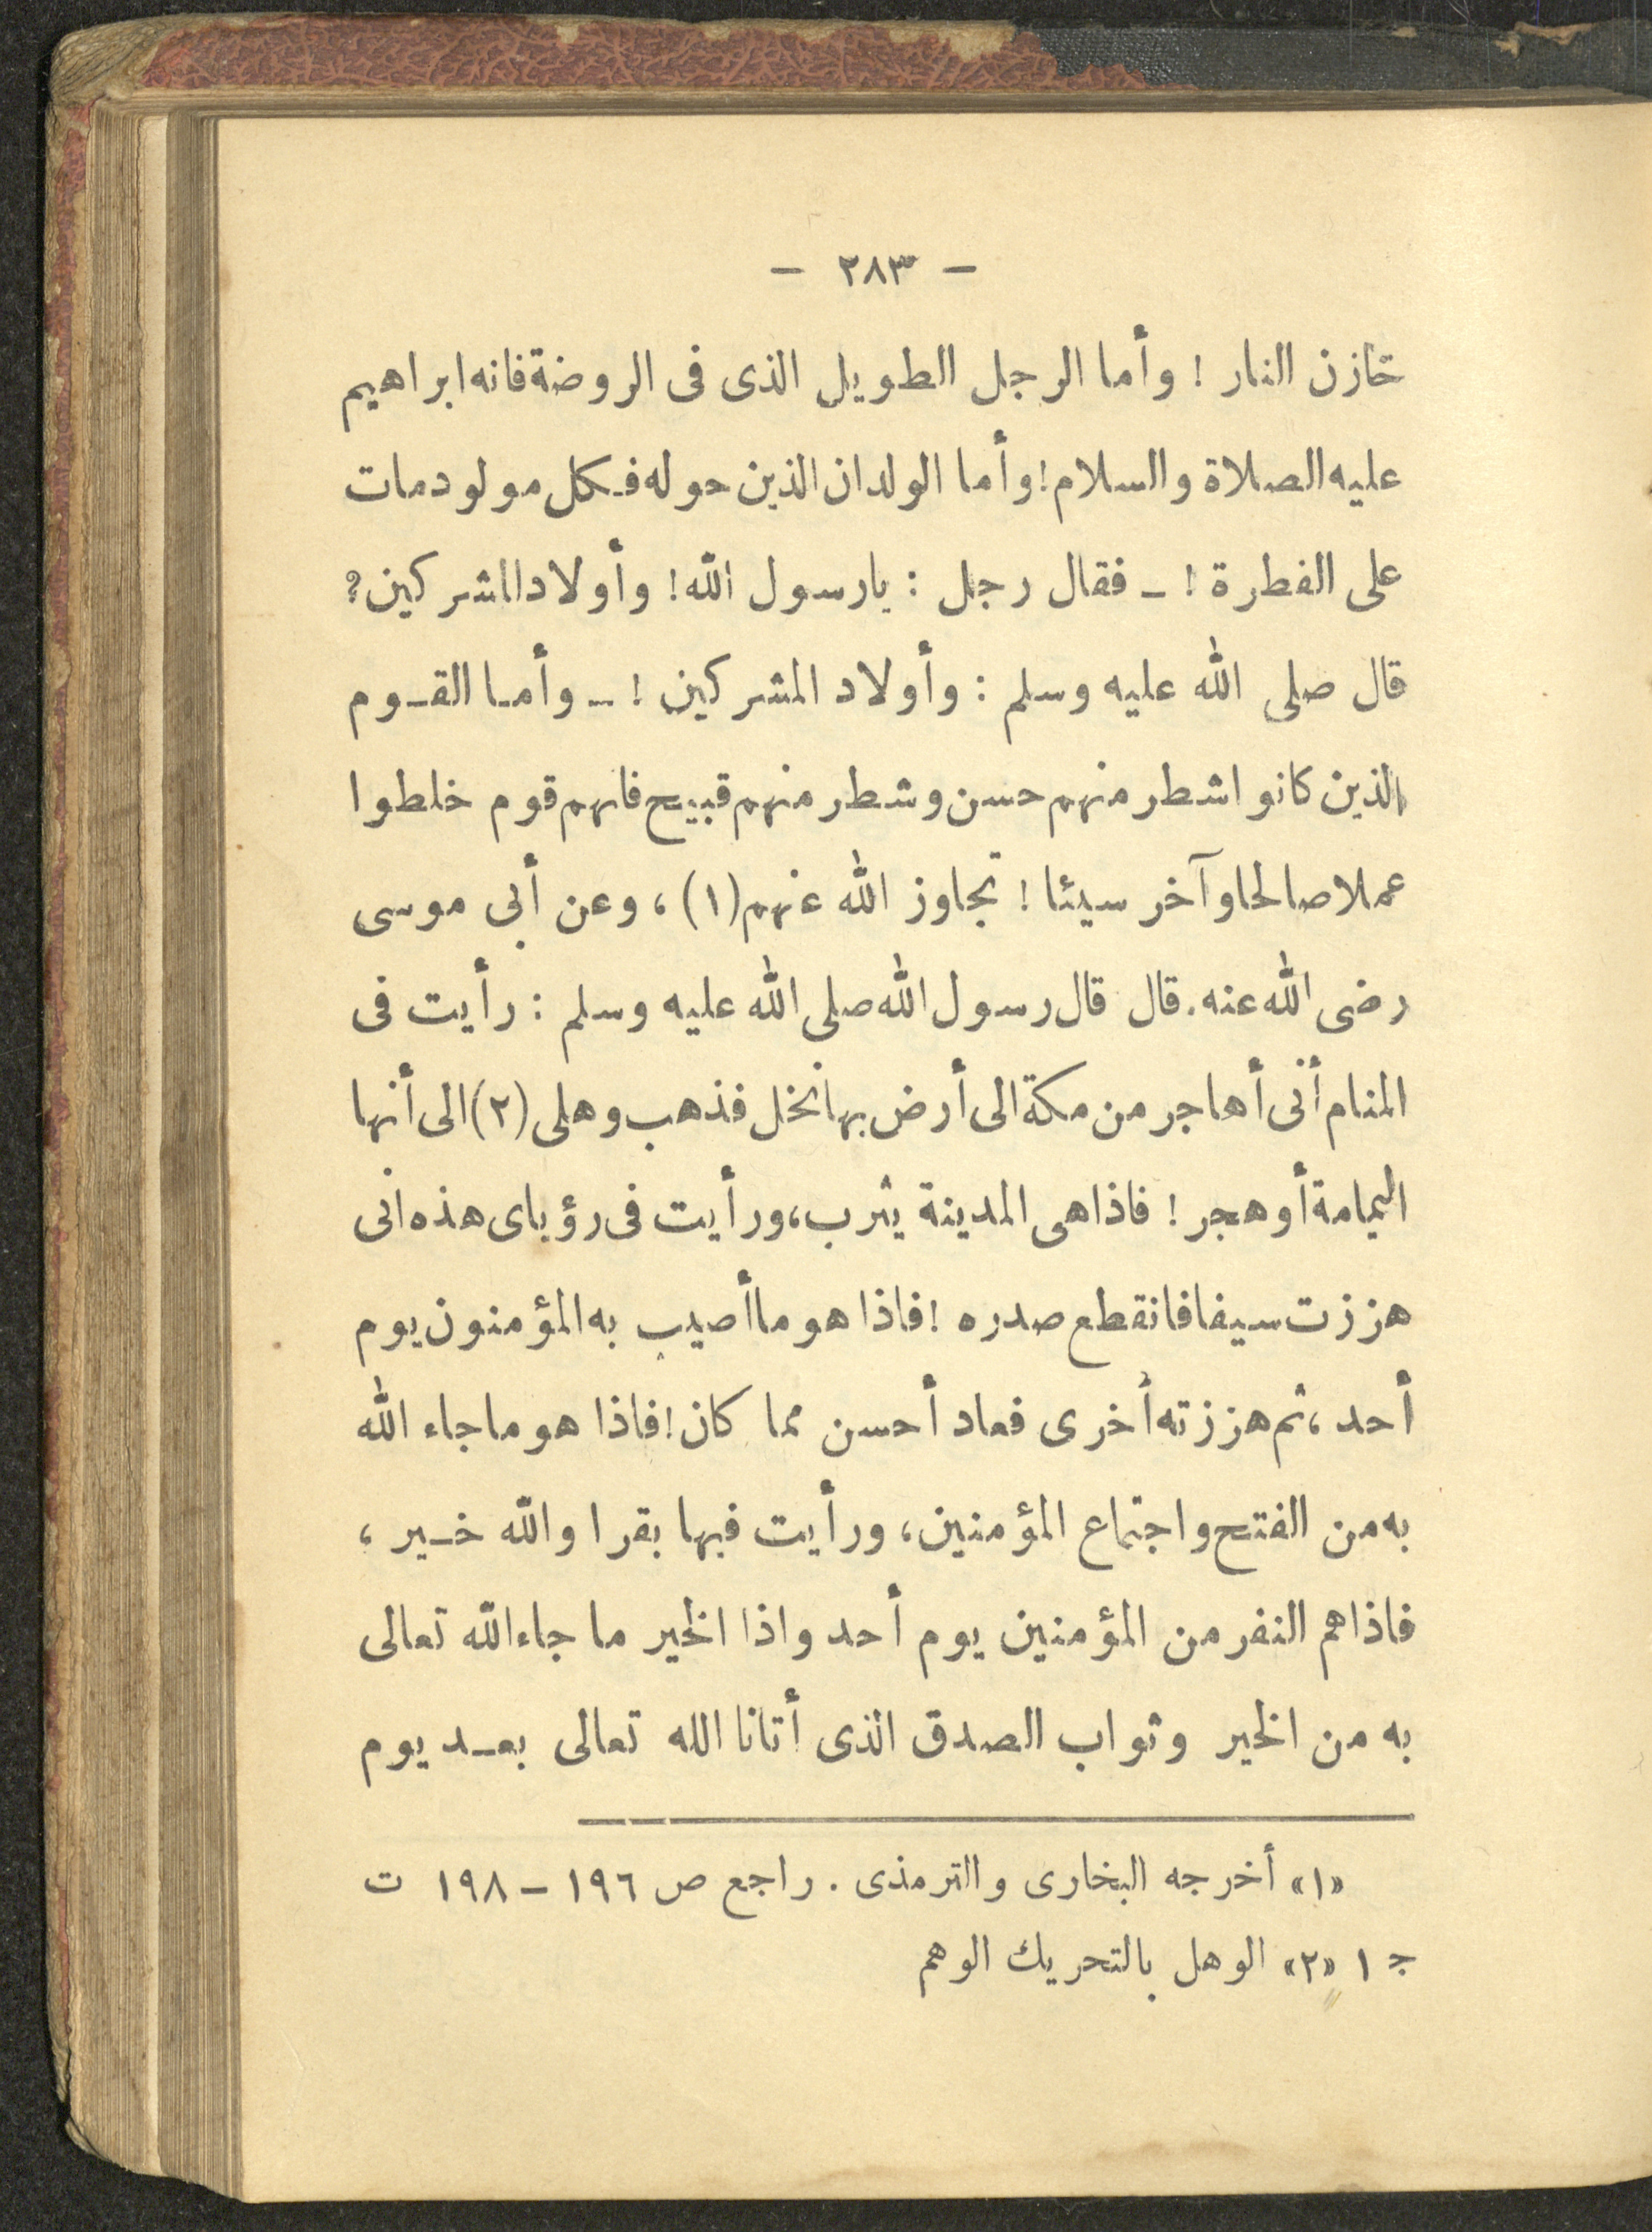 — ٢٨٣ —
خازن النار ! وأما الرجل الطويل الذى فى الروضة فانه ابراهيم
عليه الصلاة والسلام ! وأما الولدان الذين حوله فكل مولود مات
على الفطرة ! — فقال رجل : يارسول الله ! وأولاد المشركين ؟
قال صلى الله عليه وسلم : وأولاد المشركين ! — وأما القوم
الذين كانوا شطر منهم حسن وشطر منهم قبيح فانهم قوم خلطوا
عملا صالحا وآخر سيئا ! تجاوز الله عنهم (١) ، وعن أبى موسى
رضى الله عنه . قال قال رسول الله صلى الله عليه وسلم : رأيت فى
المنام أنى أهاجر من مكة الى أرض بها نخل فذهب وهلى (٢) الى أنها
اليمامة أو هجر ! فاذا هى المدينة يثرب ، ورأيت فى رؤياى هذه انى
هززت سيفا فانقطع صدره ! فاذا هو ما أصيب به المؤمنون يوم
أحد ، ثم هززته أخرى فعاد أحسن مما كان ! فاذا هو ما جاء الله
به من الفتح واجتماع المؤمنين ، ورأيت فيها بقرا والله خير ،
فاذا هم النفر من المؤمنين يوم أحد واذا الخير ما جاء الله تعالى
به من الخير وثواب الصدق الذى أتانا الله تعالى بعد يوم
«١» أخرجه البخارى والترمذى . راجع ص ١٩٦ — ١٩٨ ت
جـ ١ «٢» الوهل بالتحريك الوهم